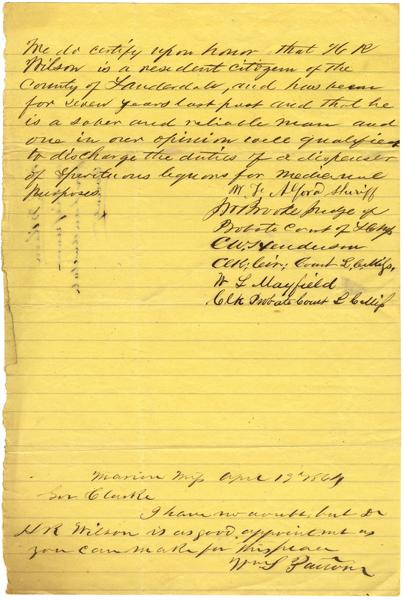 We do certify upon honor that H R
Wilson is a resident citizen of the
County of Lauderdale, and has been
for seven years last past and that he
is a sober and reliable man and
one in our opinion well qualified
to discharge the duties of a dispenser
of Spirituous liquors for medicinal
purposes.
W. J. Alford Sheriff
Brooke Judge of
Probate Court of
C W Henderson
Clk; Cir; Court L. C. Miss,
W L Mayfield
Clk Probate Court L C Miss
Marion Miss Apr 12th 1864
Gov Clarke
I have no doubt, but Dr
H R Wilson is as good, appointment as
you can make for this place
Wm S Patton